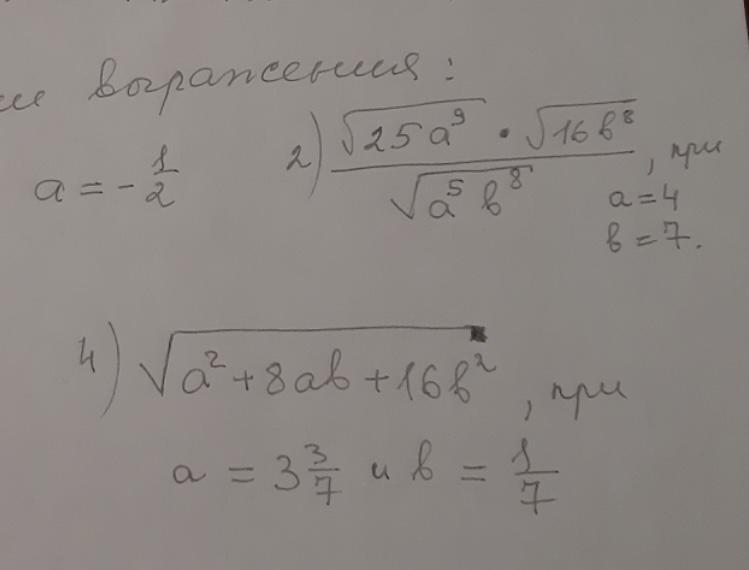 выражения:
a = -1/2
2) √(25a⁹) · √(16b⁸) / √(a⁵b⁸), при
a = 4
b = 7.
4) √(a² + 8ab + 16b²), при
a = 3 3/7 и b = 1/7